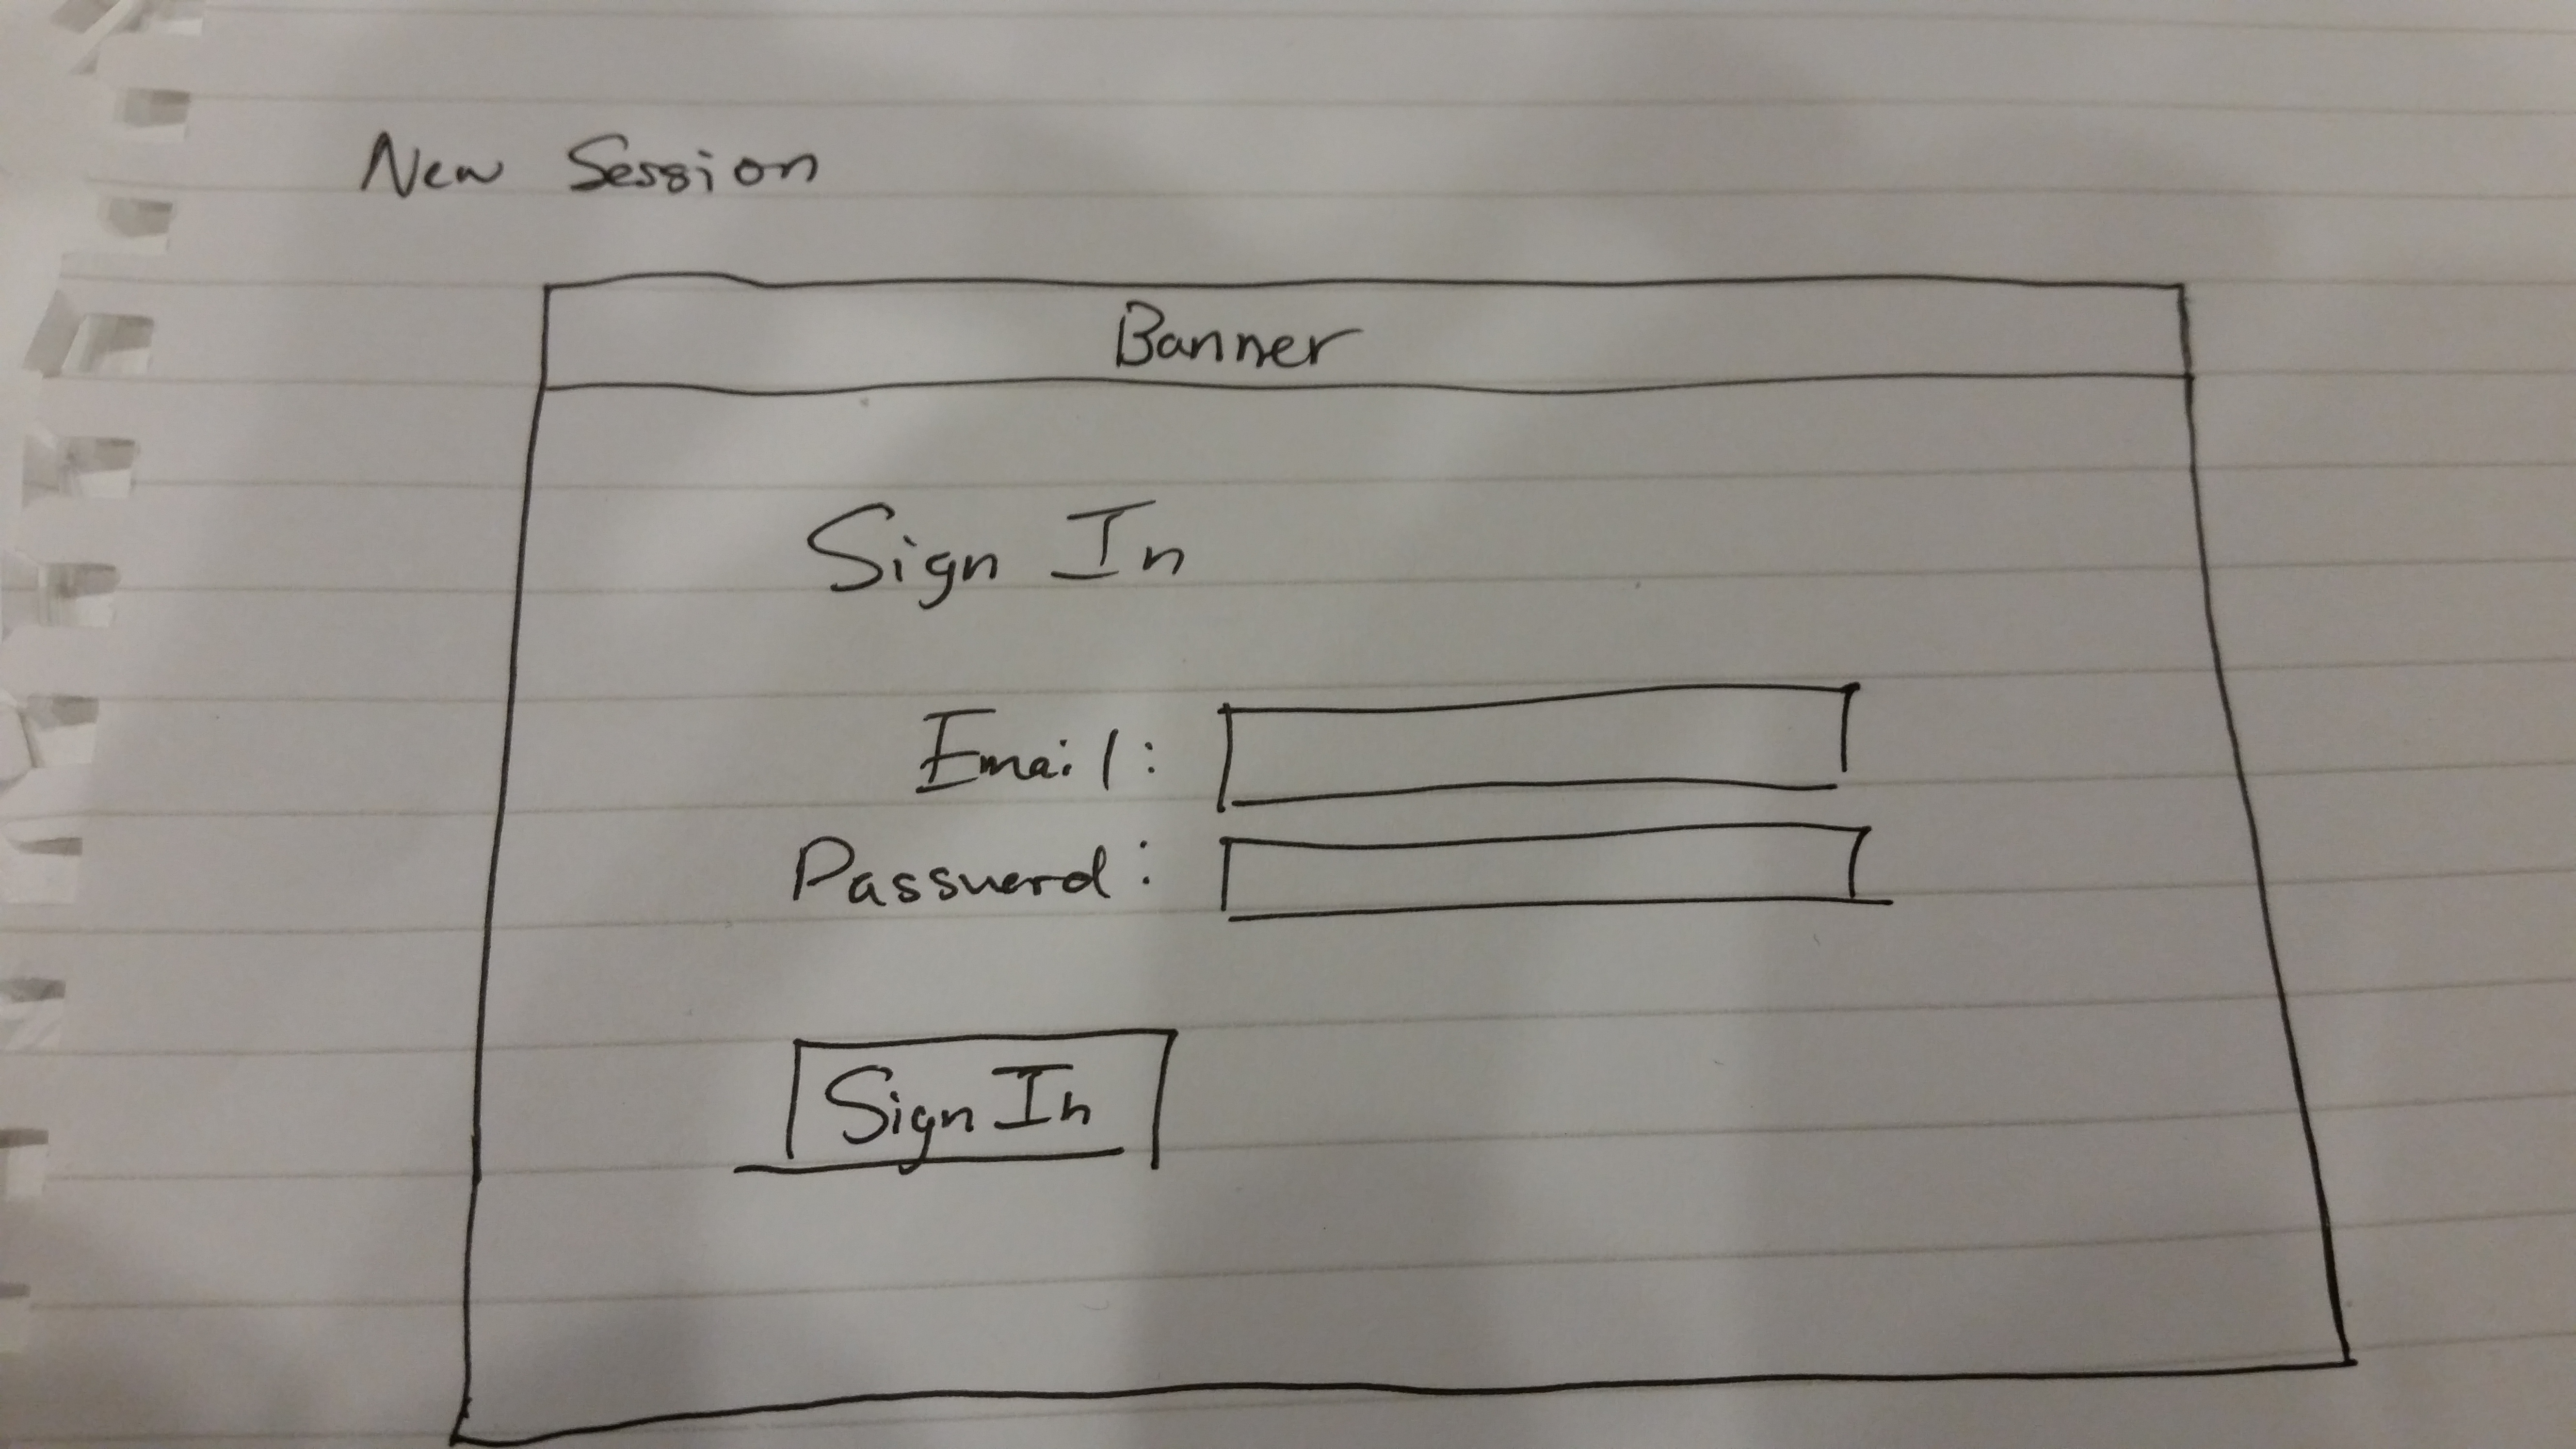 New Session
Banner
Sign In
Email:
Password:
Sign In